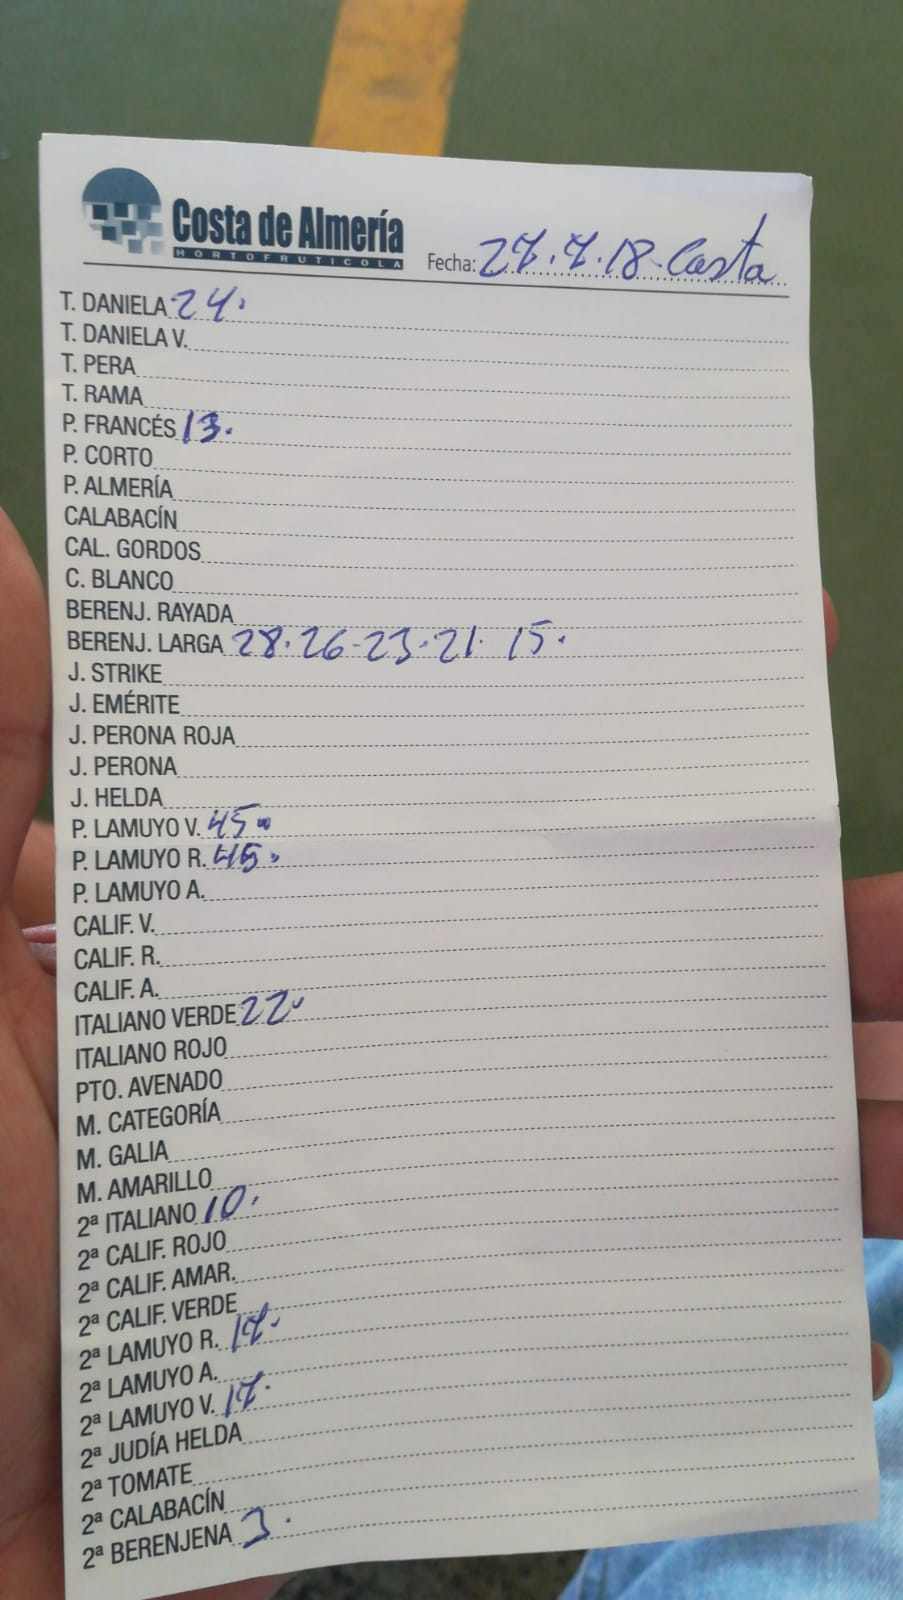 Costa de Almería
HORTOFRUTICOLA
Fecha: 27.7.18 - Costa
T. DANIELA 24.
T. DANIELA V.
T. PERA
T. RAMA
P. FRANCÉS 13.
P. CORTO
P. ALMERÍA
CALABACÍN
CAL. GORDOS
C. BLANCO
BERENJ. RAYADA
BERENJ. LARGA 28.26-23.21. 15.
J. STRIKE
J. EMÉRITE
J. PERONA ROJA
J. PERONA
J. HELDA
P. LAMUYO V. 45
P. LAMUYO R. 45
P. LAMUYO A.
CALIF. V.
CALIF. R.
CALIF. A.
ITALIANO VERDE 22
ITALIANO ROJO
PTO. AVENADO
M. CATEGORÍA
M. GALIA
M. AMARILLO
2ª ITALIANO 10.
2ª CALIF. ROJO
2ª CALIF. AMAR.
2ª CALIF. VERDE
2ª LAMUYO R. 17.
2ª LAMUYO A.
2ª LAMUYO V. 17.
2ª JUDÍA HELDA
2ª TOMATE
2ª CALABACÍN
2ª BERENJENA 3.